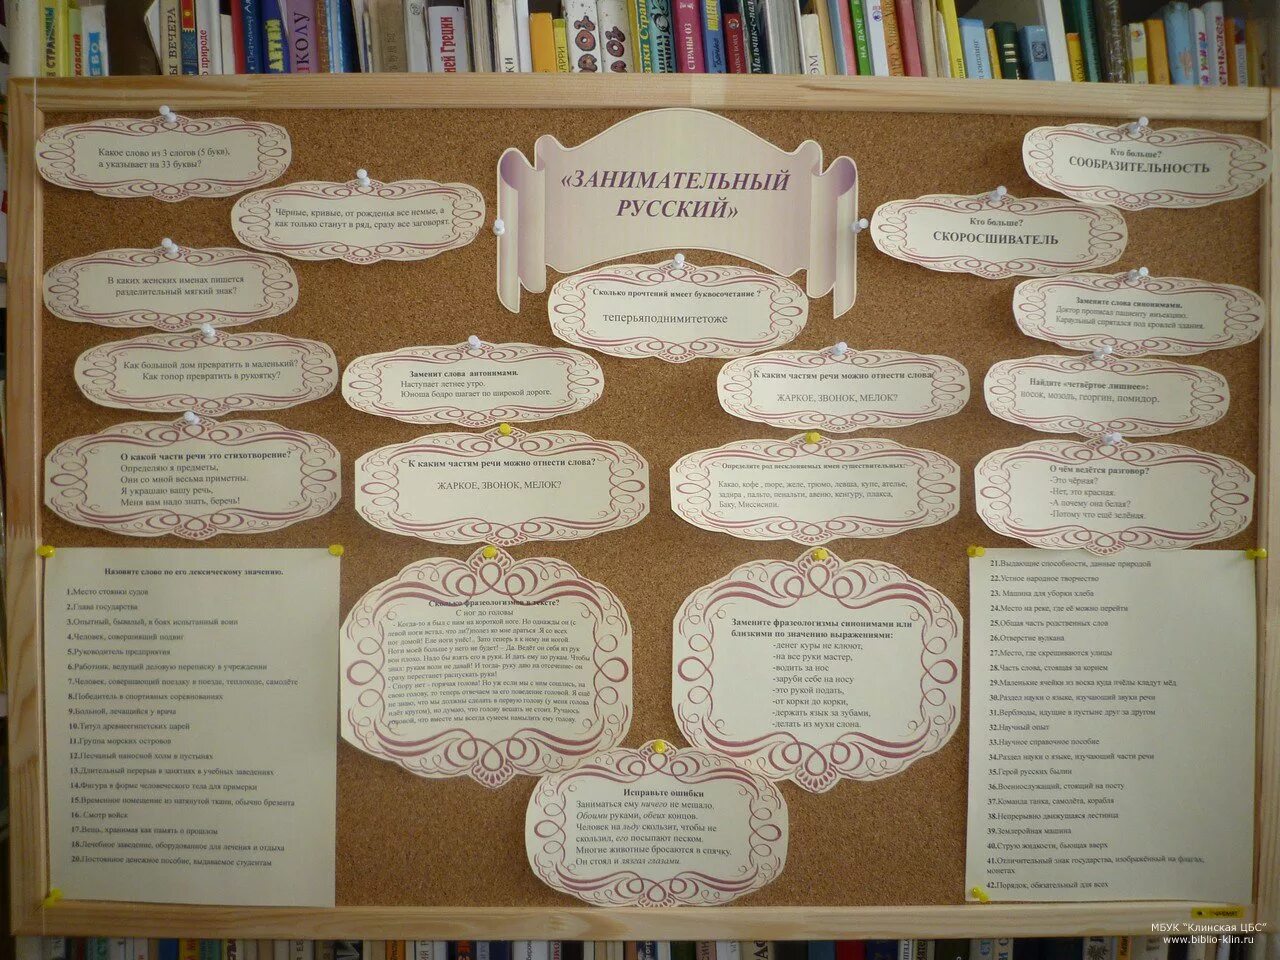 «ЗАНИМАТЕЛЬНЫЙ
РУССКИЙ»
Какое слово из 3 слогов (5 букв),
а указывает на 33 буквы?
Чёрные, кривые, от рожденья все немые, а
как только станут в ряд, сразу все заговорят.
В каких женских именах пишется
разделительный мягкий знак?
Как большой дом превратить в маленький?
Как топор превратить в рукоятку?
О какой части речи это стихотворение?
Определяю я предметы,
Они со мной весьма приметны.
Я украшаю вашу речь,
Меня вам надо знать, беречь!
Сколько прочтений имеет буквосочетание ?
теперьяподнимитетоже
Заменит слова антонимами.
Наступает летнее утро.
Юноша бодро шагает по широкой дороге.
К каким частям речи можно отнести слова?
ЖАРКОЕ, ЗВОНОК, МЕЛОК?
К каким частям речи можно отнести слова
ЖАРКОЕ, ЗВОНОК, МЕЛОК?
Определите род несклоняемых имен существительных:
Какао, кофе , пюре, желе, трюмо, левша, купе, ателье,
задира , пальто, пенальти, авеню, кенгуру, плакса,
Баку, Миссисипи.
Кто больше?
СООБРАЗИТЕЛЬНОСТЬ
Кто больше?
СКОРОСШИВАТЕЛЬ
Замените слова синонимами.
Доктор прописал пациенту инъекцию.
Караульный спрятался под кровлей здания.
Найдите «четвёртое лишнее»:
носок, мозоль, георгин, помидор.
О чём ведётся разговор?
-Это чёрная?
-Нет, это красная.
-А почему она белая?
-Потому что ещё зелёная.
Назовите слово по его лексическому значению.
1.Место стоянки судов
2.Глава государства
3.Опытный, бывалый, в боях испытанный воин
4.Человек, совершивший подвиг
5.Руководитель предприятия
6.Работник, ведущий деловую переписку в учреждении
7.Человек, совершающий поездку в поезде, теплоходе, самолёте
8.Победитель в спортивных соревнованиях
9.Больной, лечащийся у врача
10.Титул древнеегипетских царей
11.Группа морских островов
12.Песчаный наносной холм в пустынях
13.Длительный перерыв в занятиях в учебных заведениях
14.Фигура в форме человеческого тела для примерки
15.Временное помещение из натянутой ткани, обычно брезента
16. Смотр войск
17.Вещь, хранимая как память о прошлом
18.Лечебное заведение, оборудованное для лечения и отдыха
20.Постоянное денежное пособие, выдаваемое студентам
Сколько фразеологизмов в тексте?
С ног до головы
- Когда-то я был с ним на короткой ноге. Но однажды он (с
левой ноги встал, что ли?)полез ко мне драться .Я со всех
ног домой! Еле ноги унёс!.. Зато теперь я к нему ни ногой.
Ноги моей больше у него не будет! – Да. Ведёт он себя из рук
вон плохо. Надо бы взять его в руки. И дать ему по рукам. Чтобы
знал: рукам воли не давай! И тогда- руку даю на отсечение- он
сразу перестанет распускать руки!
- Спору нет – горячая голова! Но уж если мы с ним сошлись, на
свою голову, то теперь отвечаем за его поведение головой. Я ещё
не знаю, что мы должны сделать в первую голову (у меня голова
идёт кругом), но думаю, что голову вешать не стоит. Ручаюсь
головой, что вместе мы всегда сумеем намылить ему голову.
Замените фразеологизмы синонимами или
близкими по значению выражениями:
-денег куры не клюют,
-на все руки мастер,
-водить за нос
-заруби себе на носу
-это рукой подать,
-от корки до корки,
-держать язык за зубами,
-делать из мухи слона.
Исправьте ошибки
Заниматься ему ничего не мешало.
Обоими руками, обеих концов.
Человек на льду скользит, чтобы не
скользил, его посыпают песком.
Многие животные бросаются в спячку.
Он стоял и лязгал глазами.
21.Выдающие способности, данные природой
22.Устное народное творчество
23. Машина для уборки хлеба
24.Место на реке, где её можно перейти
25.Общая часть родственных слов
26.Отверстие вулкана
27.Место, где скрещиваются улицы
28.Часть слова, стоящая за корнем
29.Маленькие ячейки из воска куда пчёлы кладут мёд
30.Раздел науки о языке, изучающий звуки речи
31.Верблюды, идущие в пустыне друг за другом
32.Научный опыт
33.Научное справочное пособие
34.Раздел науки о языке, изучающий части речи
35.Герой русских былин
36.Военнослужащий, стоящий на посту
37.Команда танка, самолёта, корабля
38.Непрерывно движущаяся лестница
39.Землеройная машина
40.Струю жидкости, бьющая вверх
41.Отличительный знак государства, изображённый на флагах,
монетах
42.Порядок, обязательный для всех
МБУК "Клинская ЦБС"
www.biblio-klin.ru